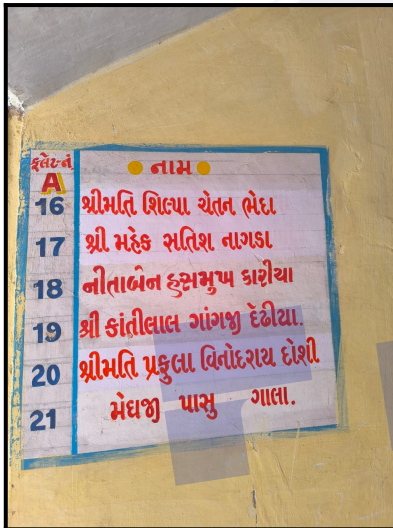 ફ્લેટનં. નામ
A
16 શ્રીમતિ શિલ્પા ચેતન ભેદા
17 શ્રી મહેક સતિશ નાગડા
18 નીતાબેન હસમુખ કારીયા
19 શ્રી કાંતીલાલ ગાંગજી દેઢીયા.
20 શ્રીમતિ પ્રફુલા વિનોદરાય દોશી
21 મેઘજી પાસુ ગાલા.